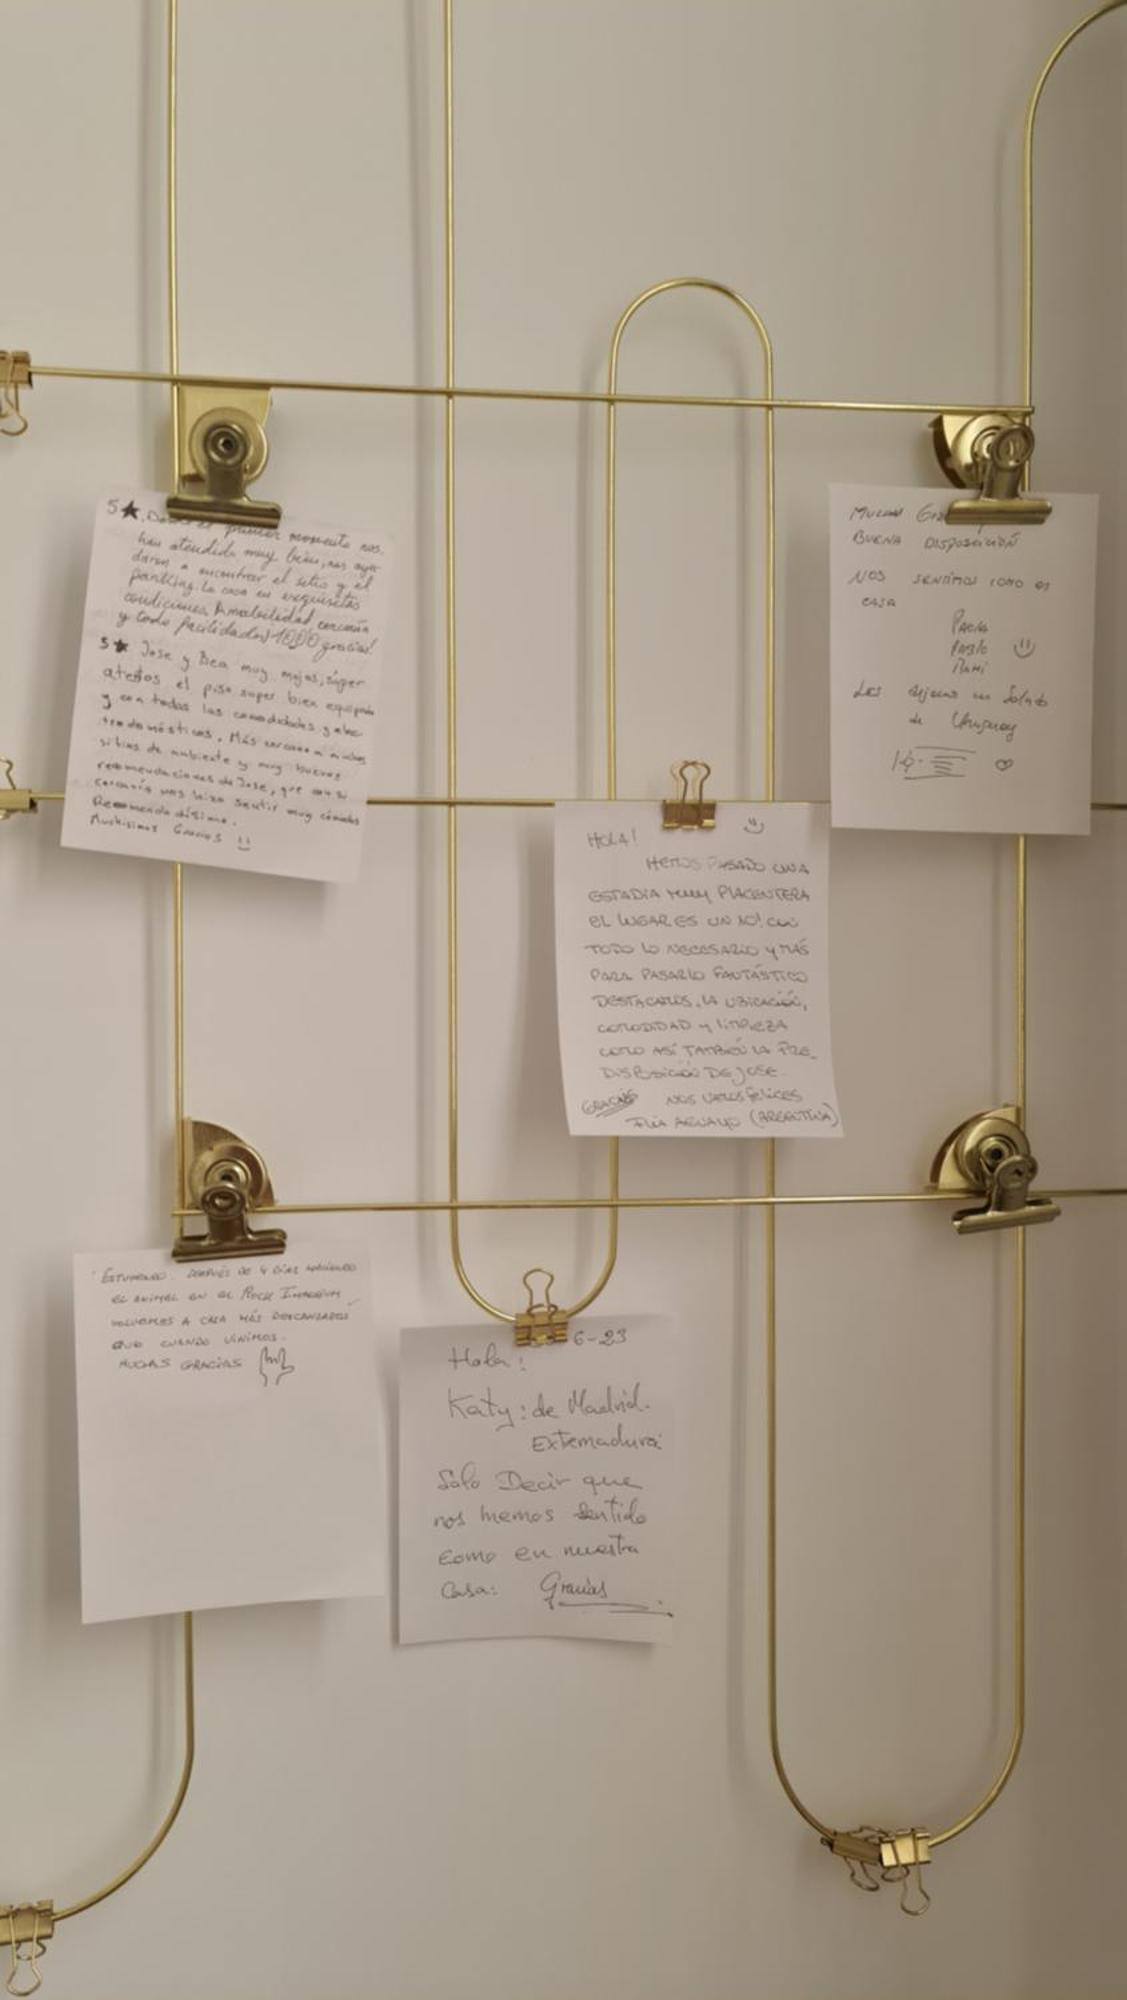 5★. Desde el primer momento nos
han atendido muy bien, nos ayu-
daron a encontrar el sitio y el
parking. La casa en exquisitas
condiciones. Amabilidad cercanía
y todo facilidades! 1000 gracias!
5★ Jose y Bea muy majos, súper
atentos el piso super bien equipado
y con todas las comodidades y elec-
trodomésticos. Más cercano a muchos
sitios de ambiente y muy buenas
recomendaciones de Jose, que con su
cercanía nos hizo sentir muy cómodos
Recomendadísimo.
Muchísimas Gracias
MUCHAS
BUENA DISPOSICIÓN
NOS SENTIMOS COMO EN
CASA
PAOLA
PABLO
Les dejamos un Saludo
de Uruguay
HOLA!
HEMOS PASADO UNA
ESTADÍA MUY PLACENTERA
EL LUGAR ES UN 10! CON
TODO LO NECESARIO Y MÁS
PARA PASARLO FANTÁSTICO
DESTACAMOS, LA UBICACIÓN,
COMODIDAD Y LIMPIEZA
COMO ASÍ TAMBIÉN LA PRE-
DISPOSICIÓN DE JOSE.
GRACIAS NOS VAMOS FELICES
FLIA AGUAYO (ARGENTINA)
ESTUPENDO. DESPUÉS DE 4 DÍAS HACIENDO
EL ANIMAL EN EL ROCK IMPERIUM
VOLVEMOS A CASA MÁS DESCANSADOS
QUE CUANDO VINIMOS.
MUCHAS GRACIAS
6-23
Hola:
Katy: de Madrid.
Extremadura
Solo Decir que
nos hemos sentido
como en nuestra
Casa: Gracias